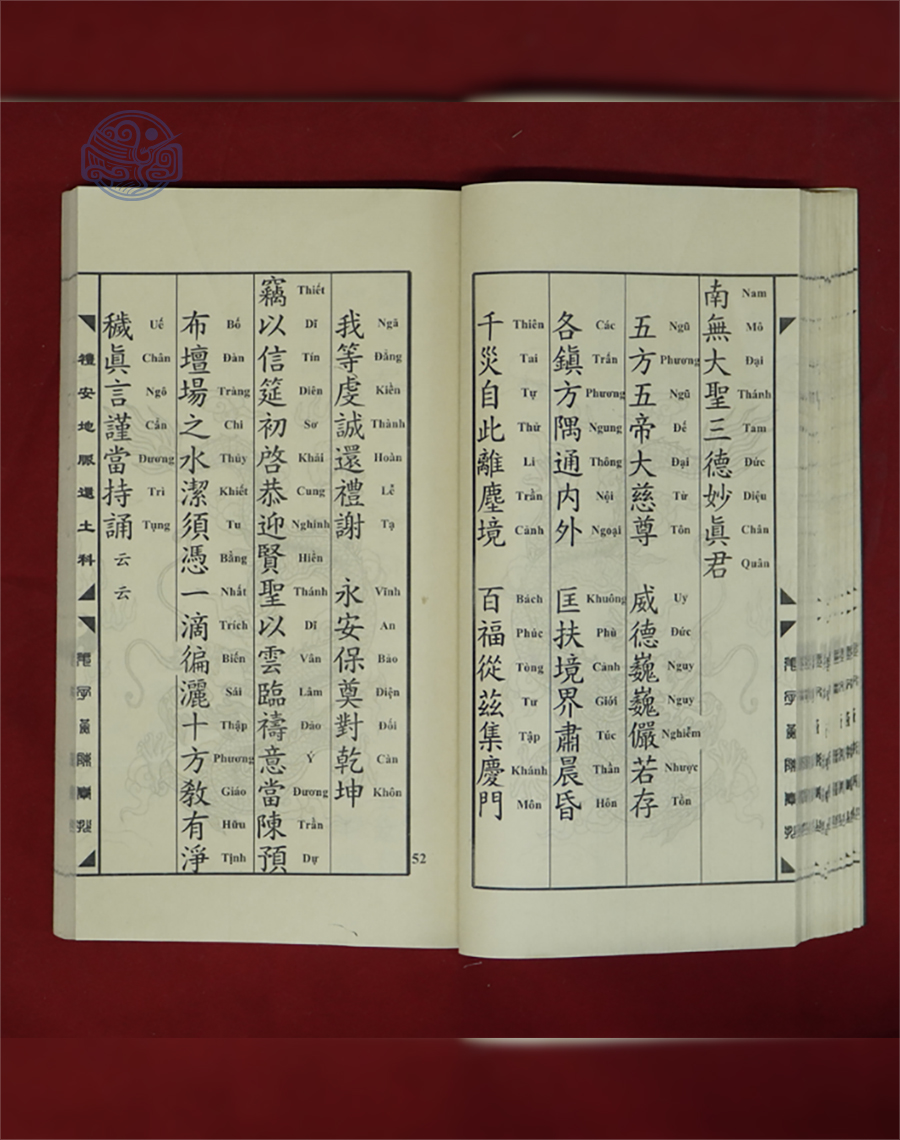 南無大聖三德妙眞君
Nam Mô Đại Thánh Tam Đức Diệu Chân Quân
五方五帝大慈尊 威德巍巍儼若存
Ngũ Phương Ngũ Đế Đại Từ Tôn Uy Đức Nguy Nguy Nghiễm Nhược Tồn
各鎮方隅通内外 匡扶境界肅晨昏
Các Trấn Phương Ngung Thông Nội Ngoại Khuông Phù Cảnh Giới Túc Thần Hôn
千災自此離塵境 百福從茲集慶門
Thiên Tai Tự Thử Li Trần Cảnh Bách Phúc Tòng Tư Tập Khánh Môn
我等虔誠還禮謝 永安保奠對乾坤
Ngã Đẳng Kiền Thành Hoàn Lễ Tạ Vĩnh An Bảo Diện Đối Càn Khôn
竊以信筵初啓恭迎賢聖以雲臨禱意當陳預
Thiết Dĩ Tín Diên Sơ Khải Cung Nghinh Hiền Thánh Dĩ Vân Lâm Đảo Ý Dương Trần Dự
布壇場之水潔須憑一滴徧灑十方教有淨
Bố Đàn Tràng Chi Thủy Khiết Tu Bằng Nhất Trích Biến Sái Thập Phương Giáo Hữu Tịnh
穢眞言謹當持誦云云
Uế Chân Ngô Cẩn Dương Trì Tụng
禮安地脈還土科
52